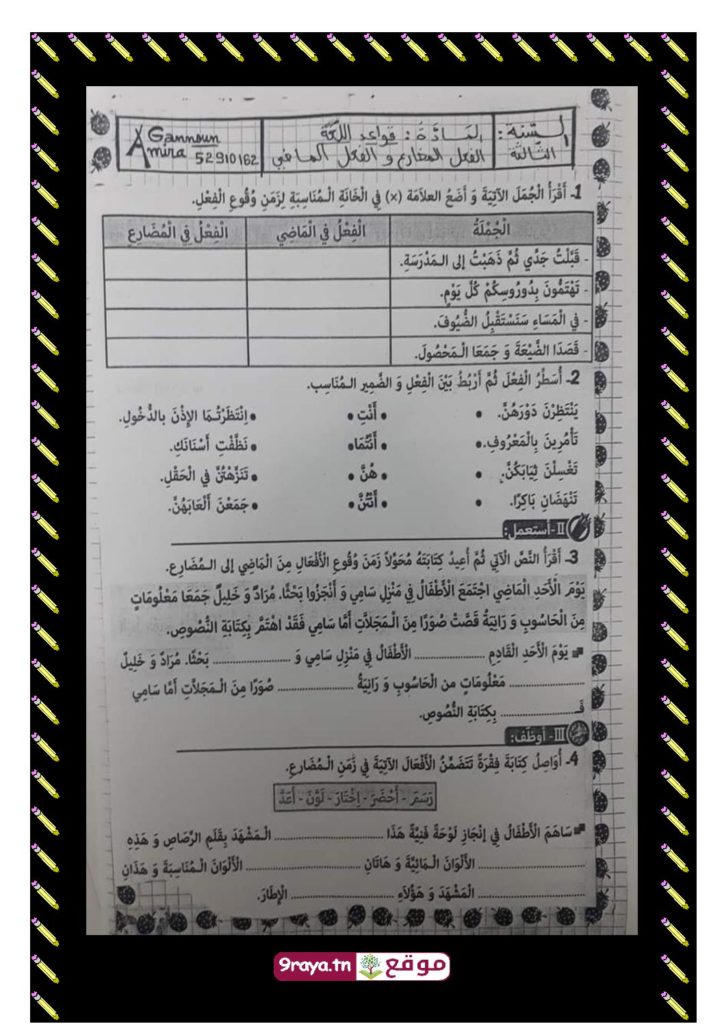 السّنة: الثّالثة
المادّة: قواعد اللّغة
الفعل المضارع و الفعل الماضي
Gannoun
Amira 52910162
1- أَقْرَأُ الْجُمَلَ الآتِيَةَ وَ أَضَعُ العلاَمَةَ (×) فِي الْخَانَةِ الْـمُنَاسِبَةِ لِزَمَنِ وُقُوعِ الْفِعْلِ.
الْجُمْلَةُ الْفِعْلُ فِي الْمَاضِي الْفِعْلُ فِي الْمُضَارِعِ
- قَبَّلْتُ جَدِّي ثُمَّ ذَهَبْتُ إلى الـمَدْرَسَةِ.
- تَهْتَمُّونَ بِدُورُوسِكُمْ كُلَّ يَوْمٍ.
- في الْمَسَاءِ سَنَسْتَقْبِلُ الضُّيُوفَ.
- قَصَدَا الضَّيْعَةَ وَ جَمَعَا الْـمَحْصُولَ.
2- أُسَطِّرُ الْفِعْلَ ثُمَّ أَرْبُطُ بَيْنَ الْفِعْلِ وَ الضَّمِيرِ الـمُنَاسِبِ.
يَنْتَظِرْنَ دَوْرَهُنَّ. • • أَنْتِ • • اِنْتَظَرْتُـمَا الإِذْنَ بالدُّخُولِ.
تَأْمُرِينَ بِالْمَعْرُوفِ. • • أَنْتُمَا • • نَظَّفْتِ أَسْنَانَكِ.
تَغْسِلْنَ ثِيَابَكُنَّ. • • هُنَّ • • تَنَزَّهْتُنَّ في الْحَقْلِ.
تَنْهَضَانِ بَاكِرًا. • • أَنْتُنَّ • • جَمَعْنَ أَلْعَابَهُنَّ.
II- أستعمل:
3- أَقْرَأُ النَّصَّ الْآتِي ثُمَّ أُعِيدُ كِتَابَتَهُ مُحَوِّلاً زَمَنَ وُقُوعِ الْأَفْعَالِ مِنَ الْمَاضِي إلى الـمُضَارِعِ.
يَوْمَ الْأَحَدِ الْمَاضِي اجْتَمَعَ الْأَطْفَالُ فِي مَنْزِلِ سَامِي وَ أَنْجَزُوا بَحْثًا. مُرَادٌ وَ خَلِيلٌ جَمَعَا مَعْلُومَاتٍ
مِنَ الْحَاسُوبِ وَ رَانِيَةُ قَصَّتْ صُوَرًا مِنَ الْـمَجَلاَّتِ أَمَّا سَامِي فَقَدْ اهْتَمَّ بِكِتَابَةِ النُّصُوصِ.
يَوْمَ الْأَحَدِ الْقَادِمِ .................. الْأَطْفَالُ فِي مَنْزِلِ سَامِي وَ .................. بَحْثًا. مُرَادٌ وَ خَلِيلٌ
.................. مَعْلُومَاتٍ من الْحَاسُوبِ وَ رَانِيَةُ .................. صُوَرًا مِنَ الْـمَجَلاَّتِ أَمَّا سَامِي
فَـ .................. بِكِتَابَةِ النُّصُوصِ.
III- أوظّف:
4- أُوَاصِلُ كِتَابَةَ فِقْرَةً تَتَضَمَّنُ الْأَفْعَالَ الْآتِيَةَ فِي زَمَنِ الْـمُضَارِعِ.
رَسَمَ - أَحْضَرَ - اِخْتَارَ - لَوَّنَ - أَعَدَّ
سَاهَمَ الْأَطْفَالُ فِي إِنْجَازِ لَوْحَةً فَنِّيَّةً هَذَا .................. الْـمَشْهَدَ بِقَلَمِ الرَّصَاصِ وَ هَذِهِ
.................. الْأَلْوَانَ الْـمَائِيَّةَ وَ هَاتَانِ .................. الْأَلْوَانَ الْـمُنَاسِبَةَ وَ هَذَانِ
.................. الْمَشْهَدَ وَ هَؤُلاَءِ .................. الْإِطَارَ.
موقع 9raya.tn